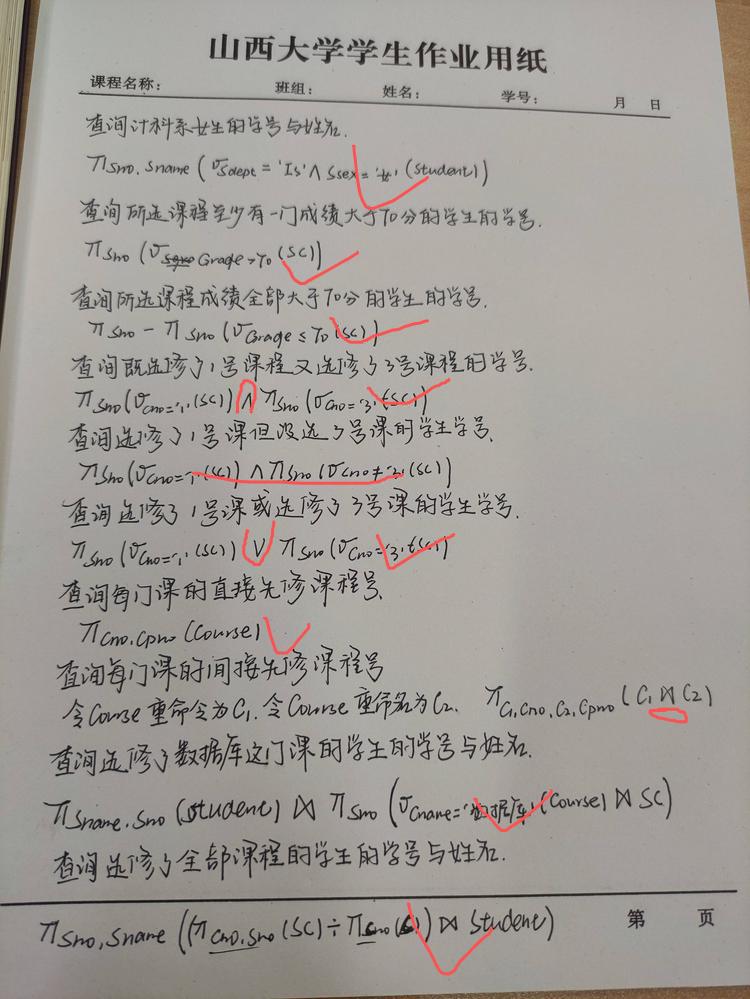 山西大学学生作业用纸
课程名称： 班组： 姓名： 学号： 月 日
查询计科系女生的学号与姓名.
π Sno. Sname (σ Sdept = 'Is' ∧ Ssex = '女' (Student))
查询所选课程至少有一门成绩大于70分的学生的学号.
π Sno (σ Grade > 70 (SC))
查询所选课程成绩全部大于70分的学生的学号.
π Sno - π Sno (σ Grade ≤ 70 (SC))
查询既选修了1号课程又选修了3号课程的学号.
π Sno (σ Cno='1' (SC)) ∧ π Sno (σ Cno='3' (SC))
查询选修了1号课但没选3号课的学生学号.
π Sno (σ Cno='1' (SC)) ∧ π Sno (σ Cno≠'3' (SC))
查询选修了1号课或选修了3号课的学生学号.
π Sno (σ Cno='1' (SC)) ∨ π Sno (σ Cno='3' (SC))
查询每门课的直接先修课程号.
π Cno, Cpno (Course)
查询每门课的间接先修课程号
令Course重命令为C1. 令Course重命名为C2. π C1.Cno, C2.Cpno (C1 ⋈ C2)
查询选修了数据库这门课的学生的学号与姓名.
π Sname, Sno (Student) ⋈ π Sno (σ Cname='数据库' (Course) ⋈ SC)
查询选修了全部课程的学生的学号与姓名.
π Sno, Sname ((π Cno, Sno (SC) ÷ π Cno ( )) ⋈ Student)
第 页